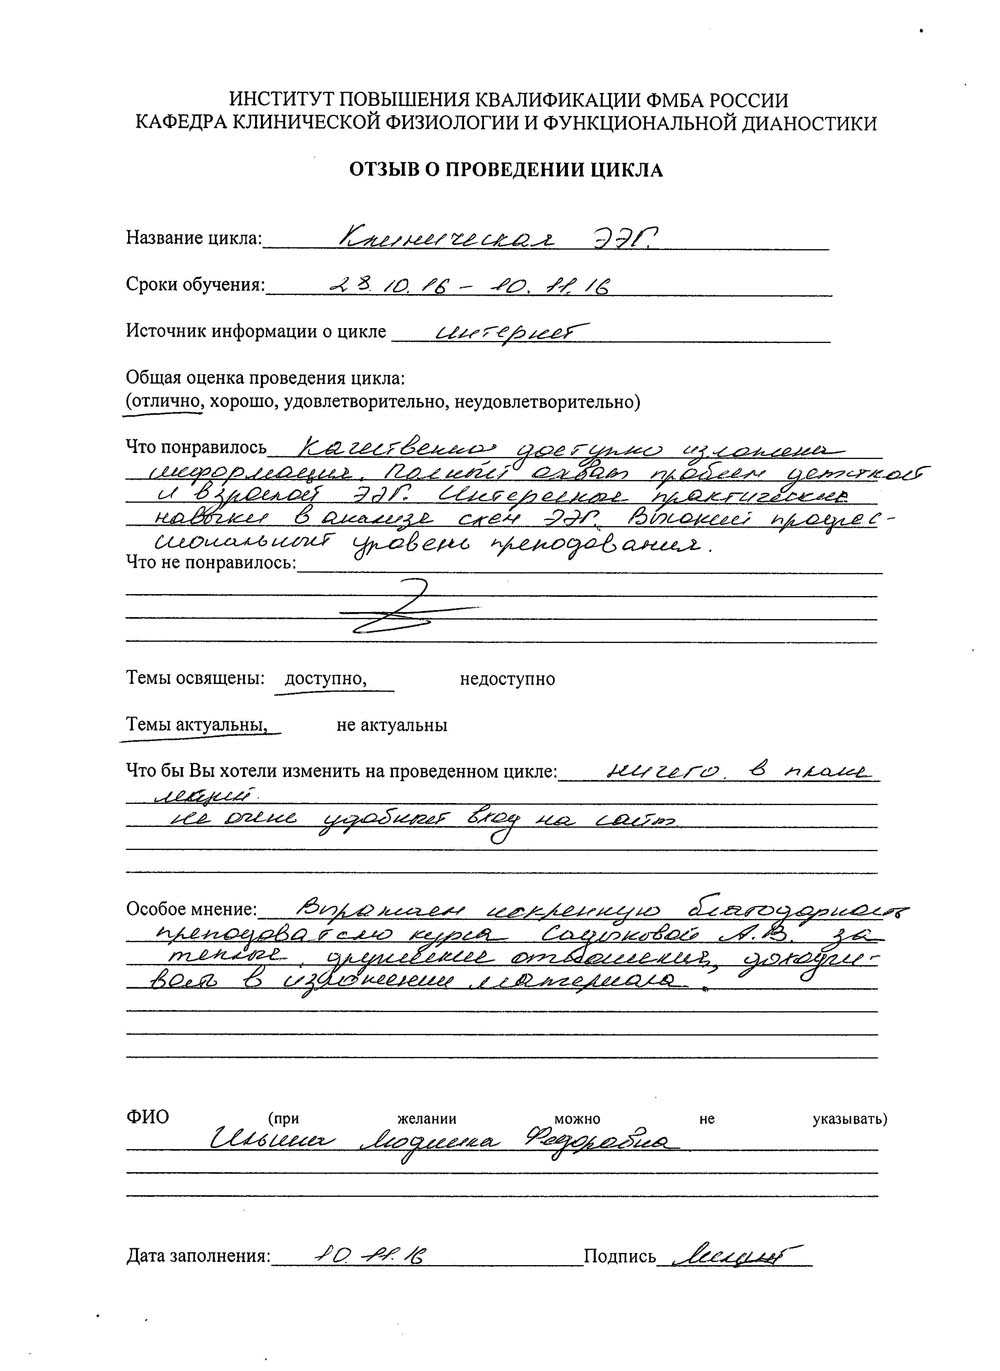 ИНСТИТУТ ПОВЫШЕНИЯ КВАЛИФИКАЦИИ ФМБА РОССИИ
КАФЕДРА КЛИНИЧЕСКОЙ ФИЗИОЛОГИИ И ФУНКЦИОНАЛЬНОЙ ДИАНОСТИКИ
ОТЗЫВ О ПРОВЕДЕНИИ ЦИКЛА
Название цикла: Клиническая ЭЭГ.
Сроки обучения: 28.10.16 – 10.11.16
Источник информации о цикле интернет
Общая оценка проведения цикла:
(отлично, хорошо, удовлетворительно, неудовлетворительно)
Что понравилось Качественно доступно изложена
информация. Полный охват проблем детской
и взрослой ЭЭГ. Интересные практические
навыки в анализе схем ЭЭГ. Высокий профес-
сиональный уровень преподования.
Что не понравилось:
Темы освящены: доступно, недоступно
Темы актуальны, не актуальны
Что бы Вы хотели изменить на проведенном цикле: ничего. в плане
лекций.
не очень удобный вход на сайт.
Особое мнение: Выражаем искренную благодарность
преподователю курса Садыковой А.В. за
теплые, дружеские отношения, доходчи-
вость в изложении материала.
ФИО (при желании можно не указывать)
Ильина Людмила Федоровна
Дата заполнения: 10.11.16 Подпись